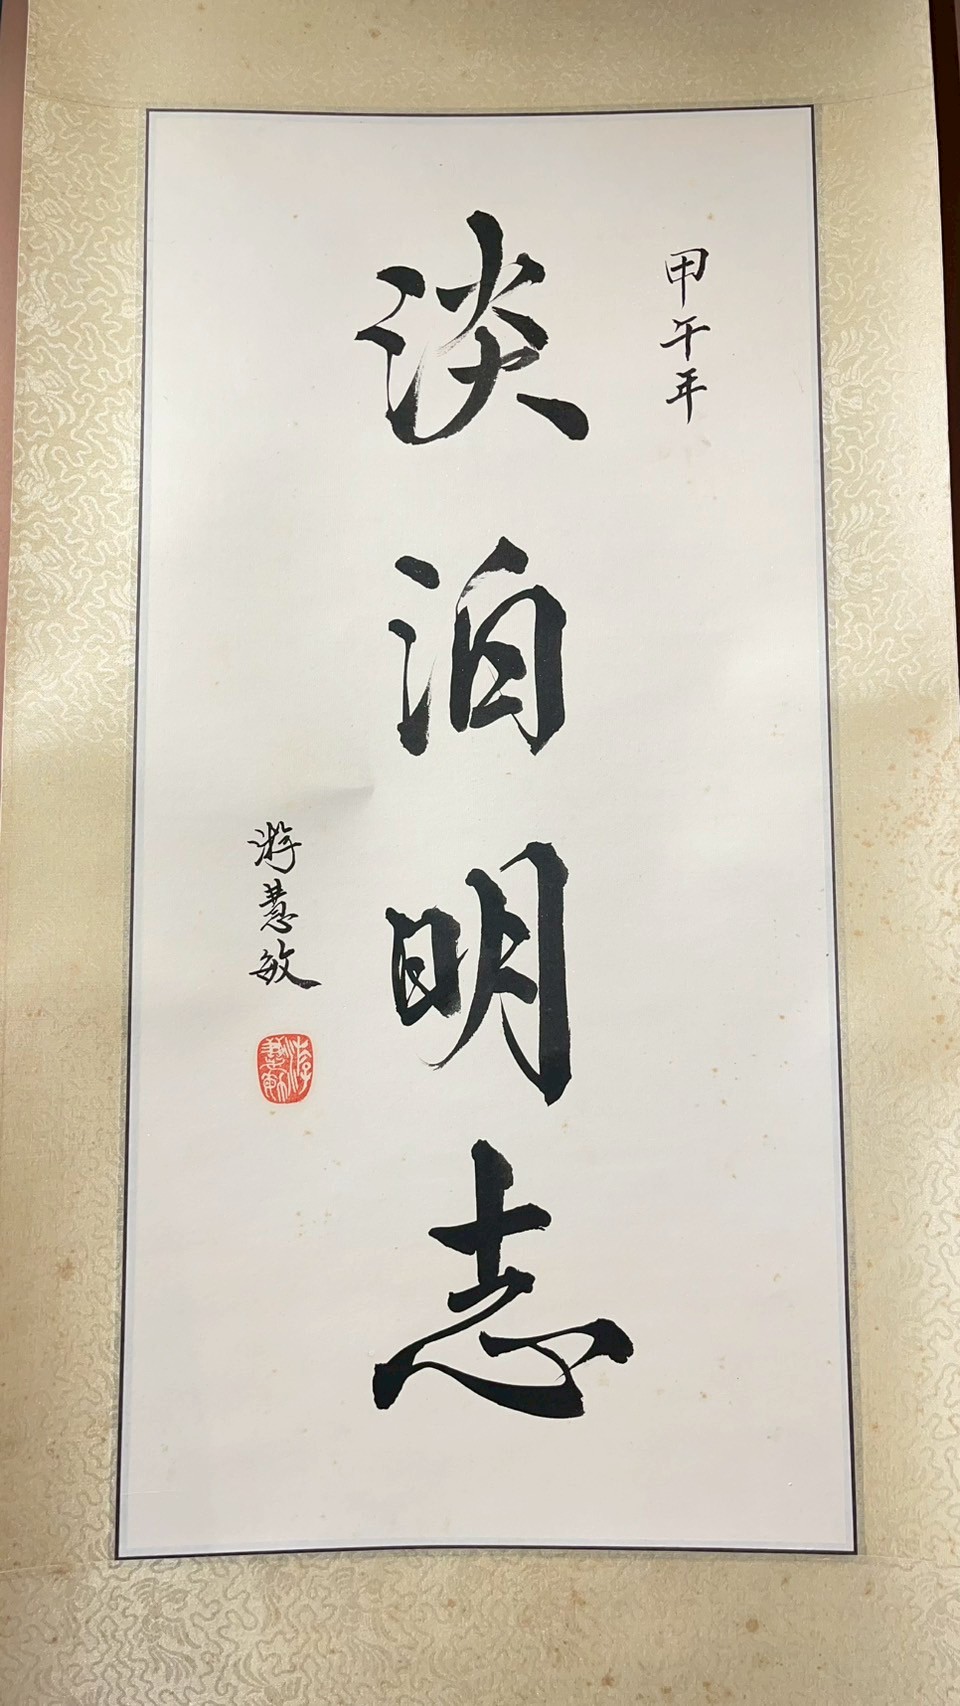 甲午年
淡泊明志
游慧敏